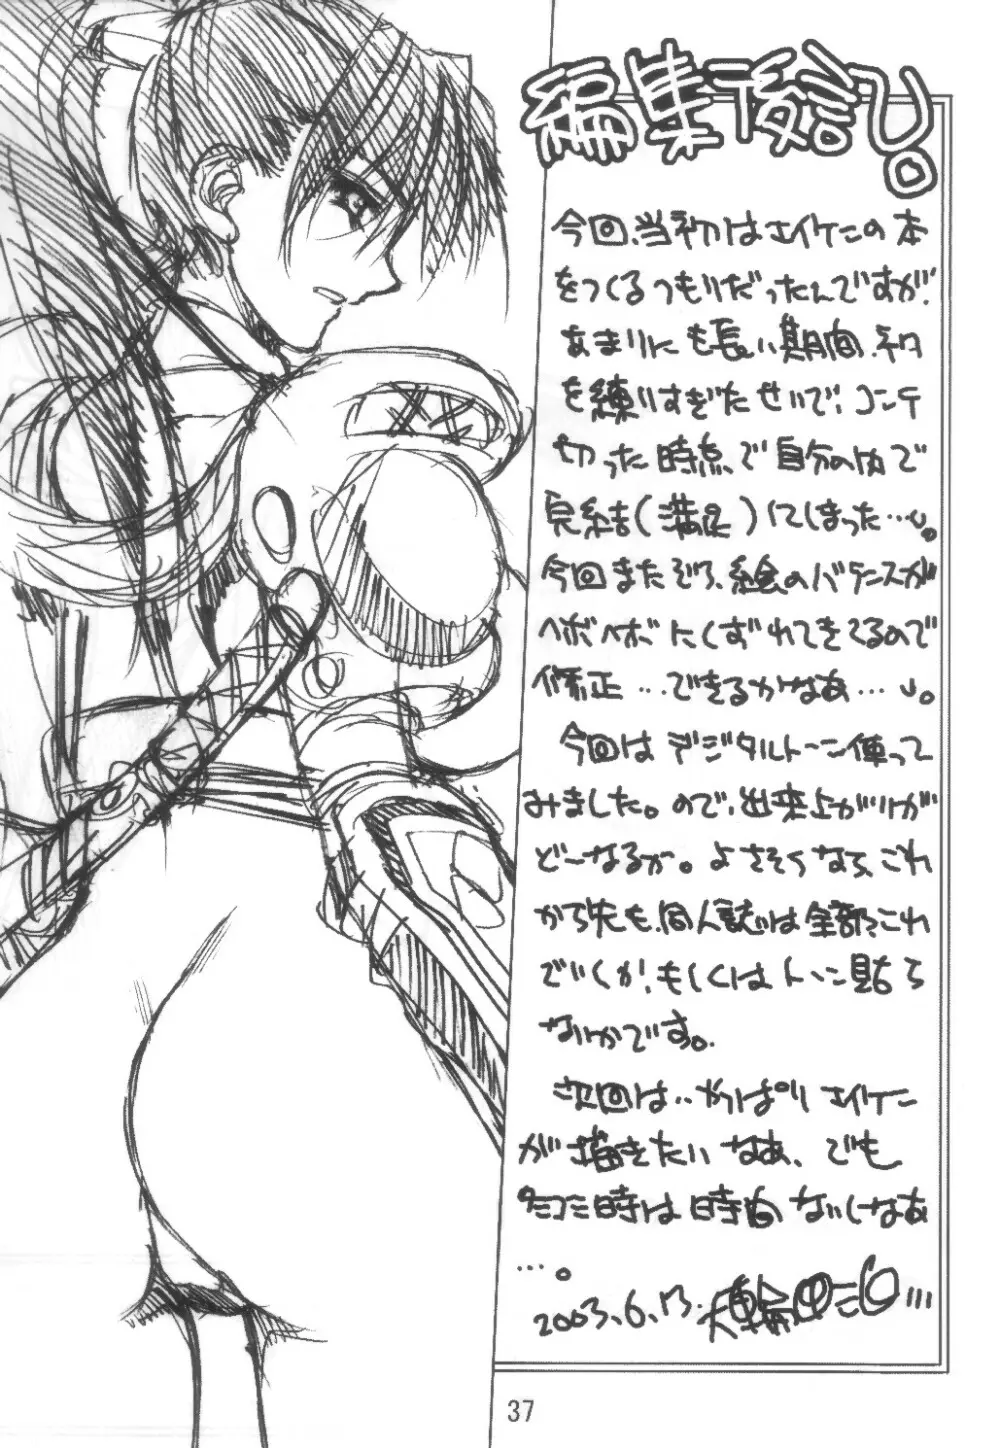 編集後記。
今回、当初はエイケンの本
をつくるつもりだったんですが、
あまりにも長い期間、ネタ
を練りすぎたせいで、コンテ
切った時点、で自分の内で
完結(満足)にしまった…。
今回またぞろ、絵のバランスが
ヘボヘボにくずれてきてるので
修正…できるかなあ…。
今回はデジタルトーン使って
みました。ので、出来上がりが
どーなるか。よさそうなら、これ
から先も、同人誌は全部これ
でいくか、もしくはトーン貼ら
ないかです。
次回は…やっぱりエイケン
が描きたいなあ、でも
時は時間ないしなあ
…。
2003.6.13.
37